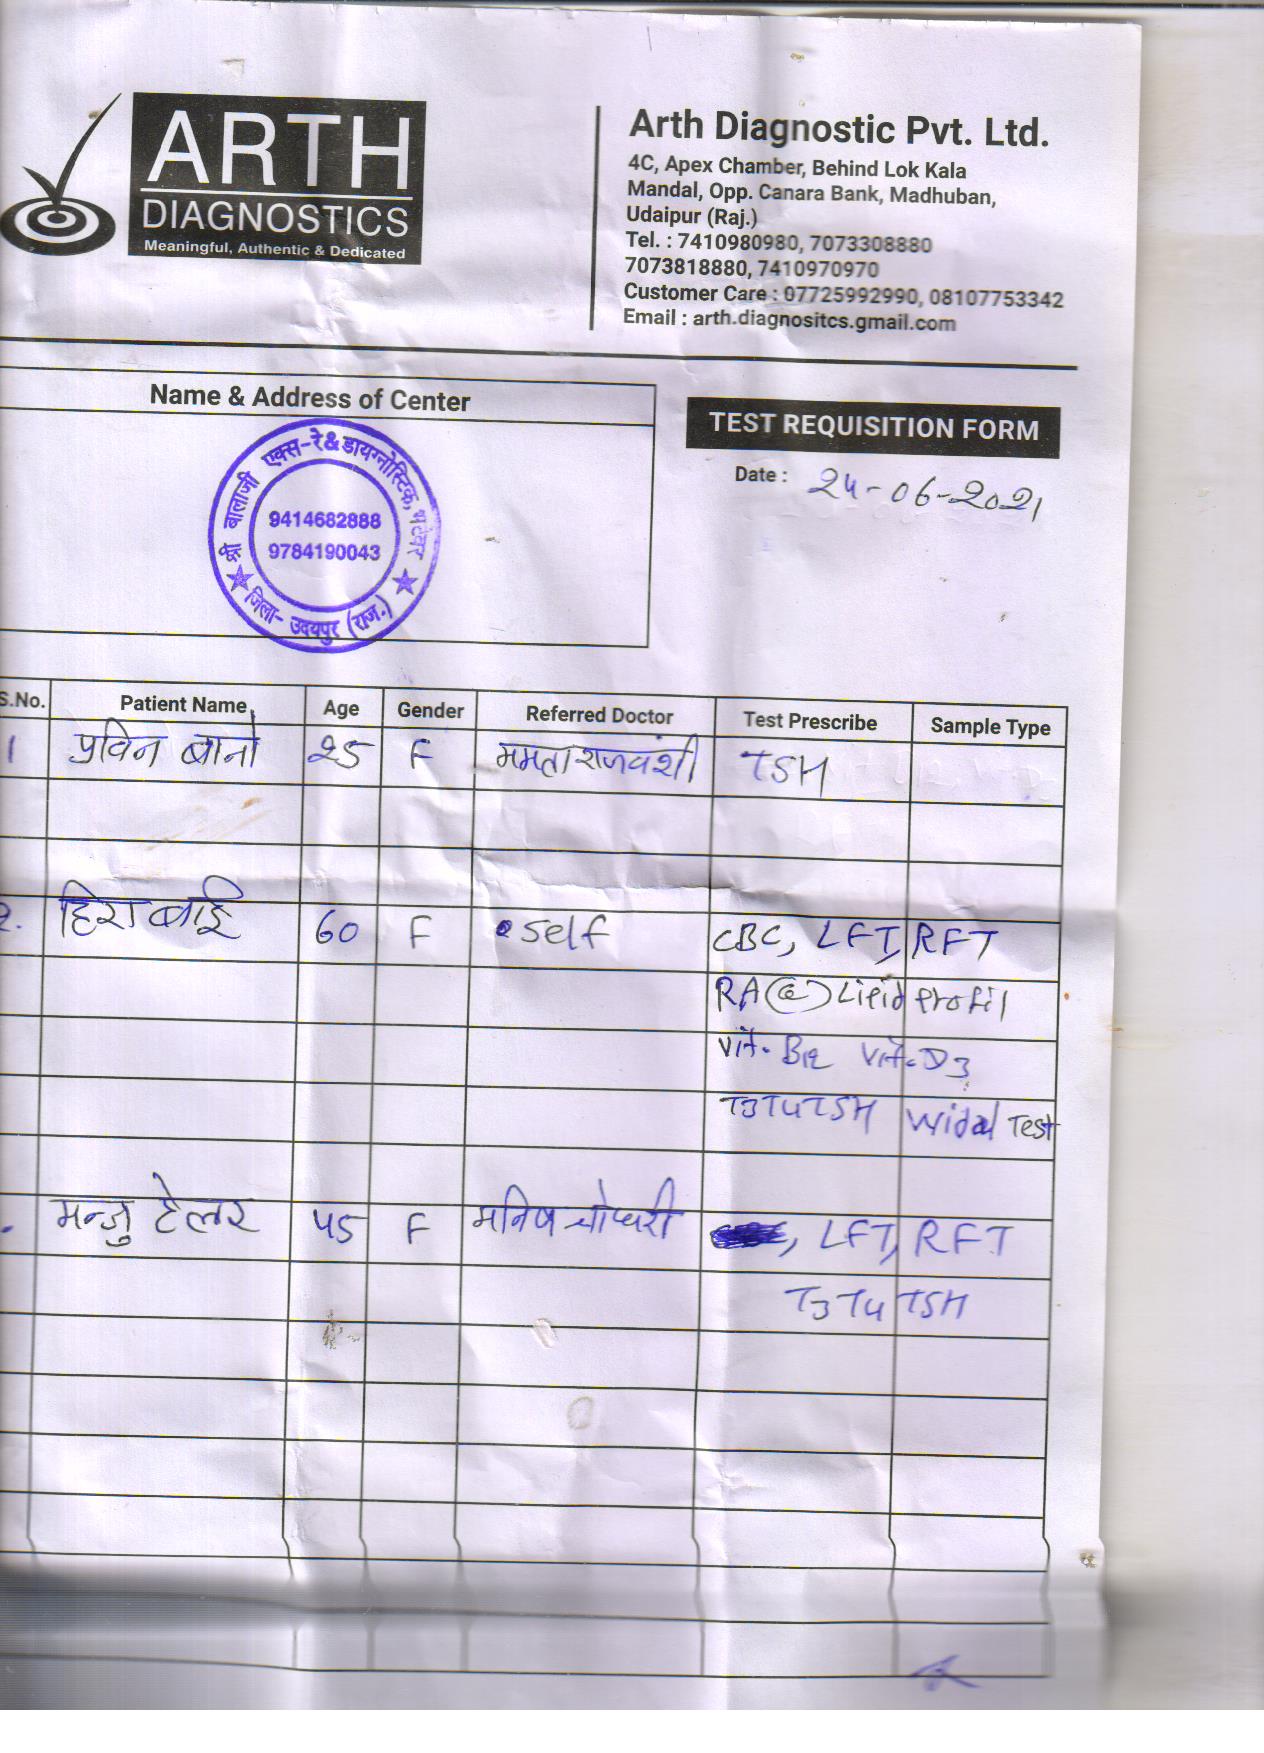 ARTH
DIAGNOSTICS
Meaningful, Authentic & Dedicated
Arth Diagnostic Pvt. Ltd.
4C, Apex Chamber, Behind Lok Kala
Mandal, Opp. Canara Bank, Madhuban,
Udaipur (Raj.)
Tel. : 7410980980, 7073308880
7073818880, 7410970970
Customer Care : 07725992990, 08107753342
Email : arth.diagnositcs.gmail.com
Name & Address of Center
श्री बालाजी एक्स-रे & डायग्नोस्टिक, भटेवर
9414682888
9784190043
जिला- उदयपुर (राज.)
TEST REQUISITION FORM
Date : 24-06-2021
S.No. Patient Name Age Gender Referred Doctor Test Prescribe Sample Type
1 प्रविन बानो 25 F ममता राजवंशी TSH
2. हिरा बाई 60 F self CBC, LFT, RFT
RA Lipid Profil
Vit. B12 Vit. D3
T3 T4 TSH Widal Test
मन्जु टेलर 45 F मनिष चोधरी , LFT, RFT
T3 T4 TSH